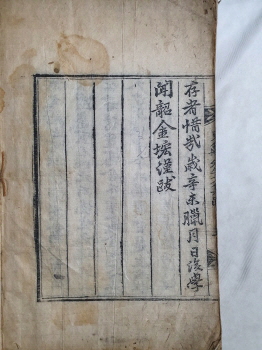 存者惜哉歲辛未臘月日後學
聞韶金㙆謹跋